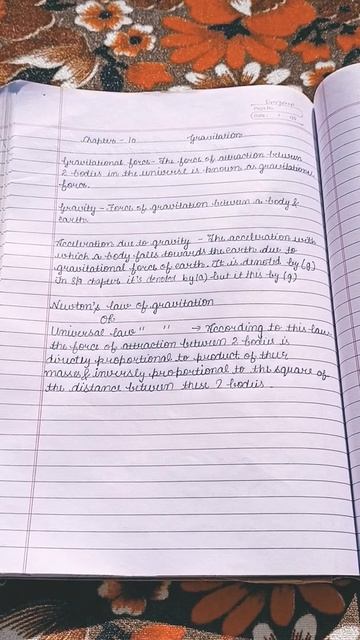 Page No.
Date
Chapter - 10 Gravitation
Gravitational force - The force of attraction between
2 bodies in the universe is known as gravitational
force.
Gravity - Force of gravitation between a body &
earth.
Acceleration due to gravity - The acceleration with
which a body falls towards the earth due to
gravitational force of earth. It is denoted by (g)
In chapters it's denoted by (a) but it this by (g)
Newton's law of gravitation
Or
Universal law " " → According to this law
the force of attraction between 2 bodies is
directly proportional to product of their
masses & inversly proportional to the square of
the distance between these 2 bodies.